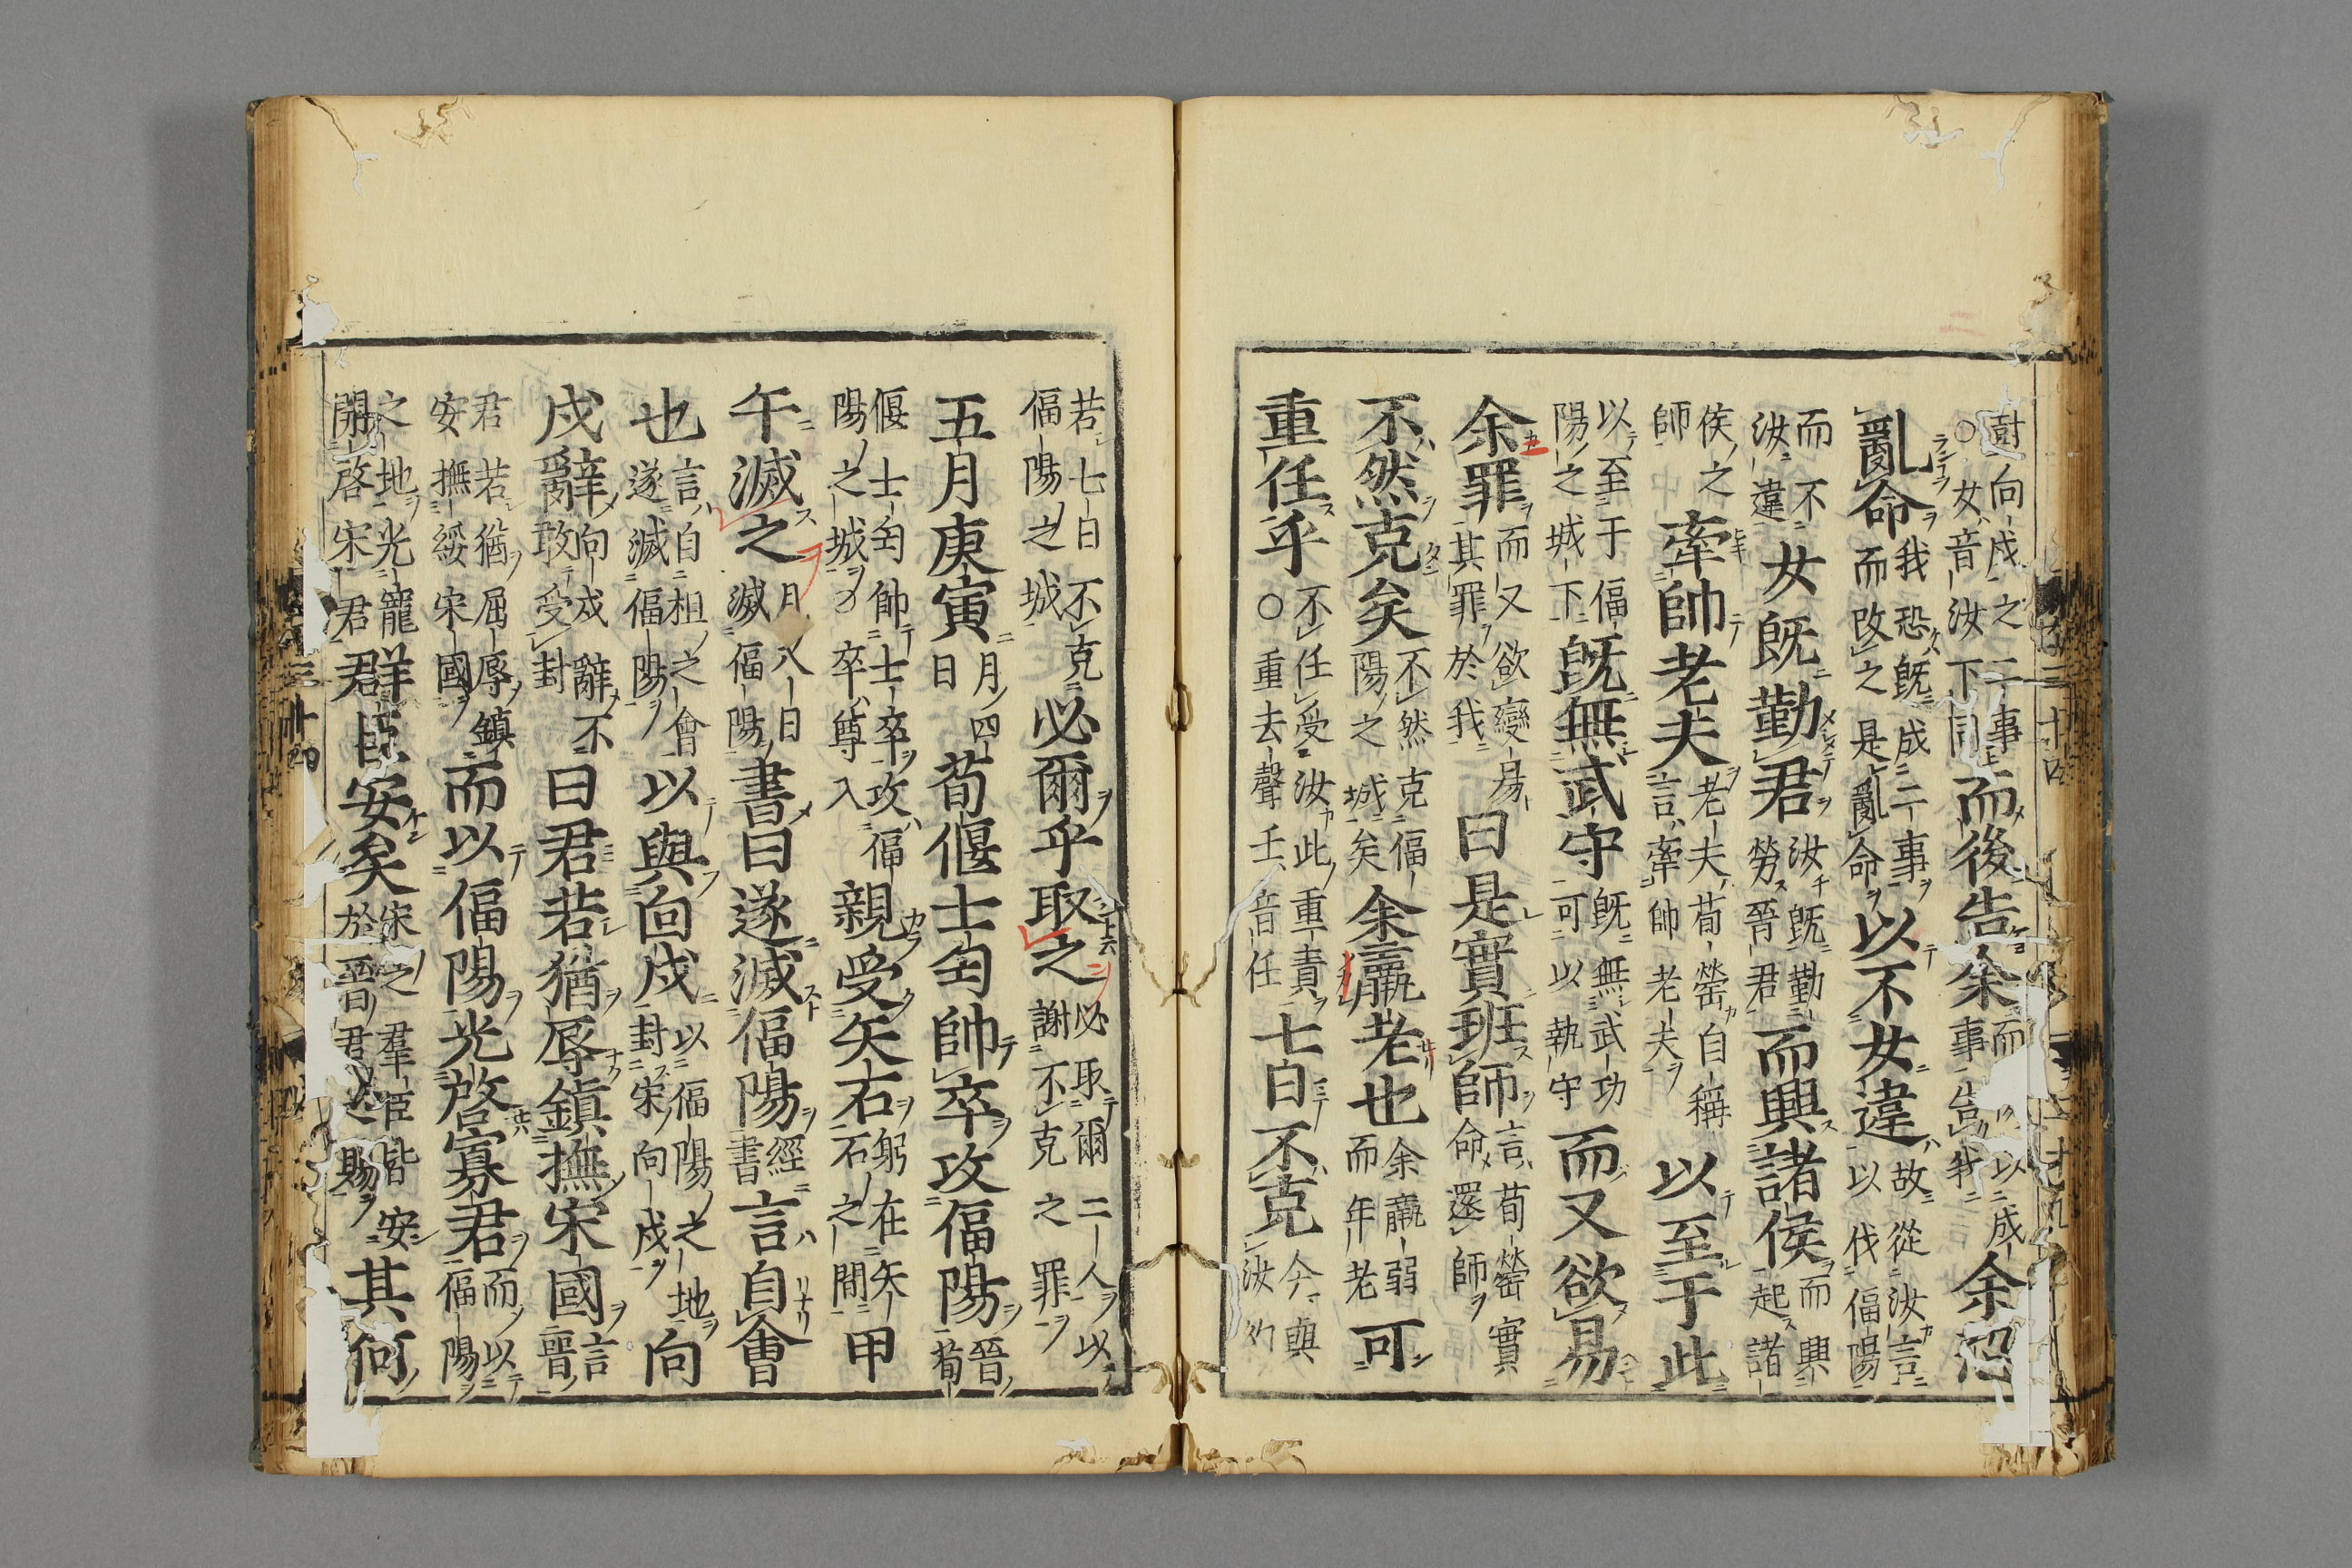 封向戍之二事而後告余而以成
○女音汝下同事告我余恐
亂命我恐既成二事以不女違故從汝言
而改之是亂命以伐偪陽
而不女既勤君汝既勤而興諸侯而興
汝違勞晉君起諸
侯之牽帥老夫老夫荀罃自稱以至于此
師言牽帥老夫
以至于偪既無武守既無武功而又欲易
陽之城下可以執守
余罪而又欲變易曰是實班師言荀罃實
其罪於我命還師
不然克矣不然克偪余羸老也余羸弱可
陽之城矣而年老
重任乎不任受汝此重責七日不克今與
○重去聲壬音任汝約
若七日不克必爾乎取之必取爾二人以
偪陽之城謝不克之罪
五月庚寅月四荀偃士匄帥卒攻偪陽晉
日荀
偃士匄帥士卒攻偪親受矢石躬在矢甲
陽之城卒尊入石之間
午滅之月八日書曰遂滅偪陽經言自會
滅偪陽書
也言自柤之會以與向戍以偪陽之地向
遂滅偪陽封宋向戍
戍辭向戍辭不曰君若猶辱鎮撫宋國言
敢受封晉
君若猶屈辱鎮而以偪陽光啓寡君而以
安撫綏宋國偪陽
之地光寵群臣安矣宋之群臣皆安其何
開啓宋君於晉君之賜